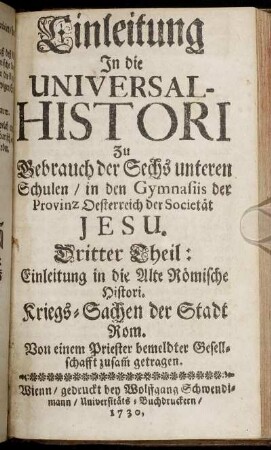 Einleitung
In die
UNIVERSAL-
HISTORI
Zu
Gebrauch der Sechs unteren
Schulen / in den Gymnasiis der
Provinz Oesterreich der Societät
JESU.
Dritter Theil:
Einleitung in die Alte Römische
Histori.
Kriegs-Sachen der Stadt
Rom.
Von einem Priester bemeldter Gesell-
schafft zusam̃ getragen.
Wienn / gedruckt bey Wolffgang Schwendi-
mann / Universitäts-Buchdruckern /
1730.